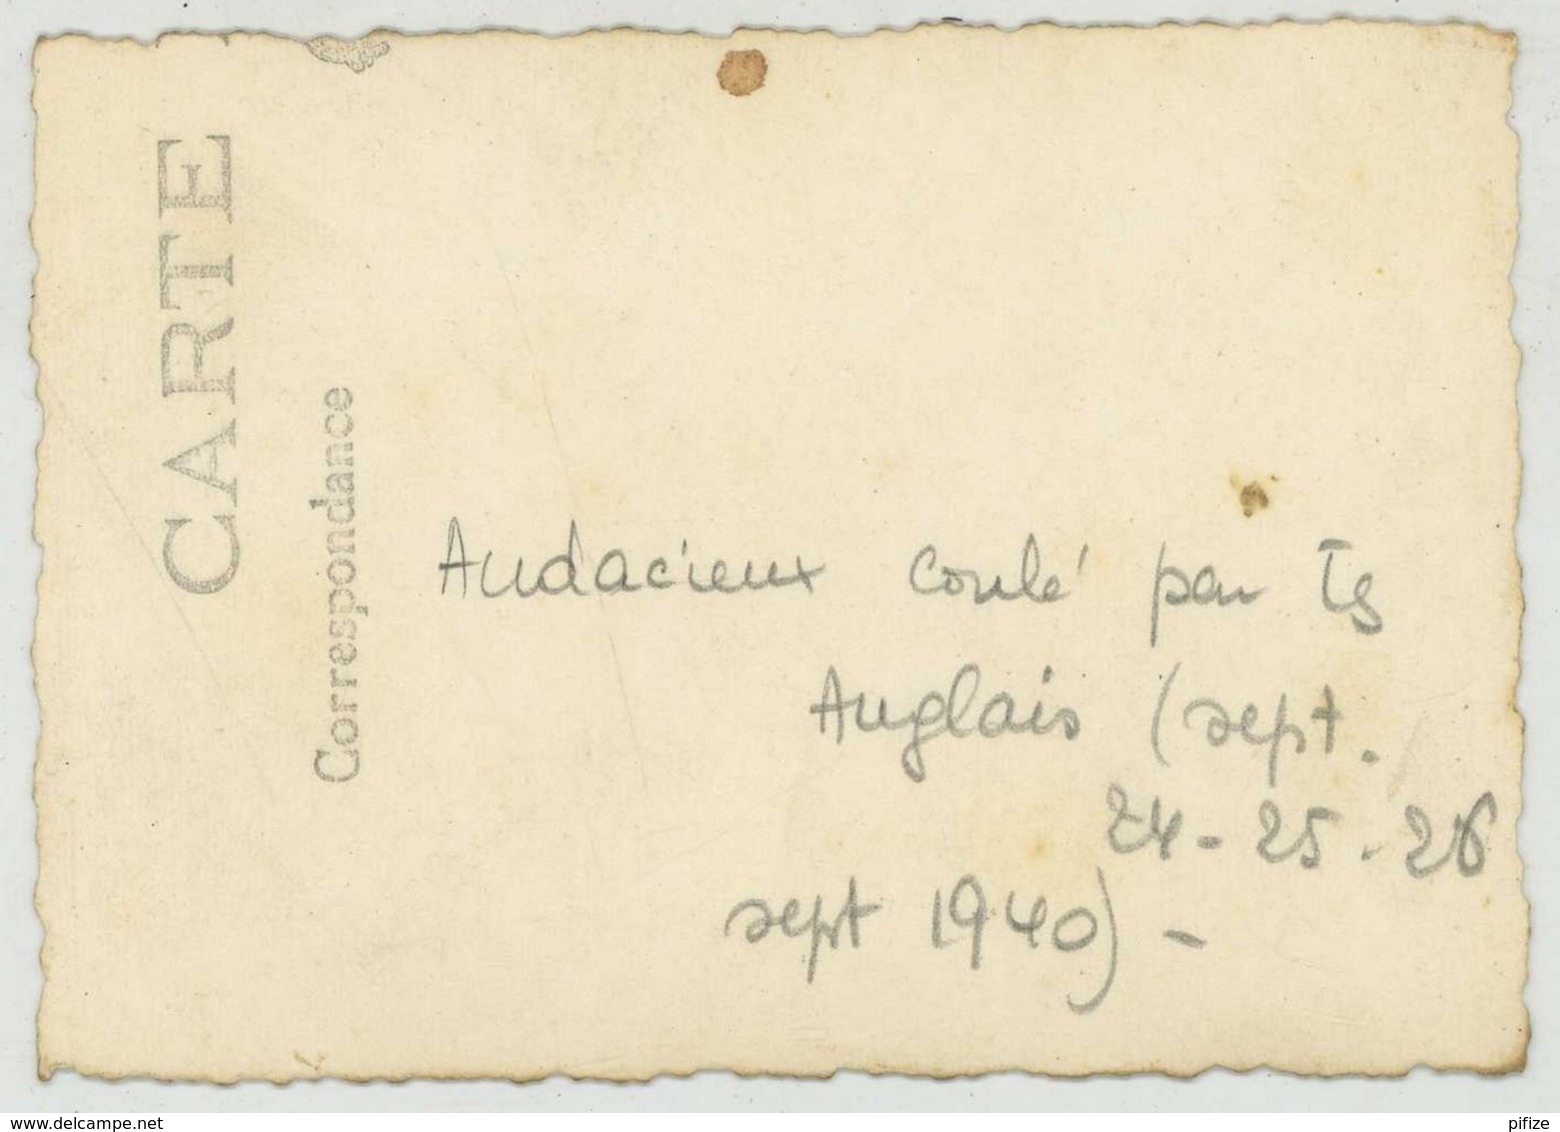 CARTE
Correspondance
Audacieux coulé par ts
Anglais (sept.
24-25.26
sept 1940) -
www.delcampe.net
pifize